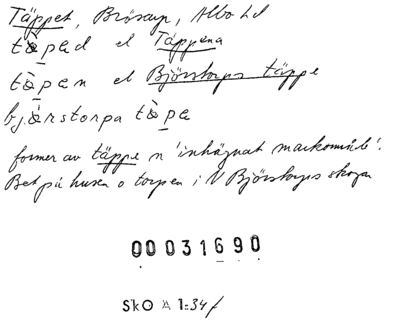 Täppet, Brösarp, Albo hd
tàpəd el Täpperna
tàpən el Björstorps täppe
bjàrstorpa tàpə
former av täppe n 'inhägnat markområde'.
Bet på husen o torpen i V Björstorps skogen
00031690
SkO Ä 1:34f